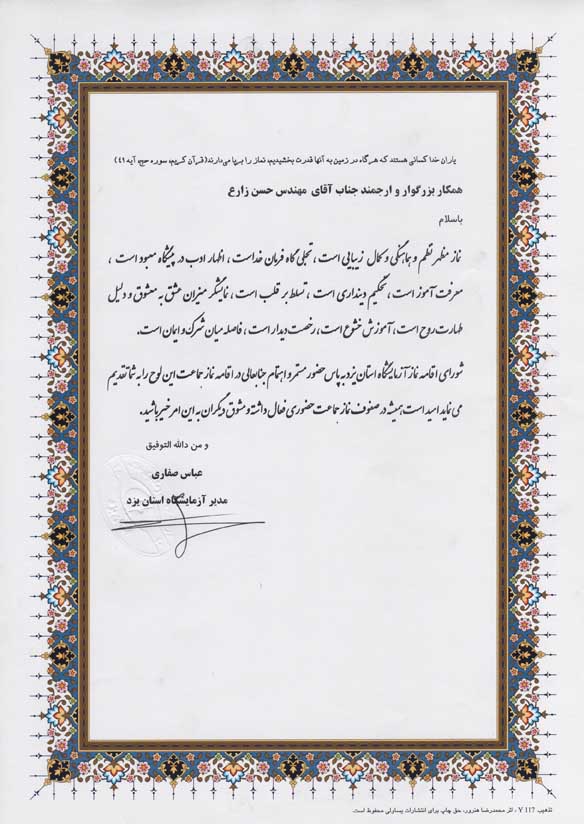 یاران خدا کسانی هستند که هرگاه در زمین به آنها قدرت بخشیدیم، نماز را برپا می‌دارند(قرآن کریم، سوره حج، آیه ۴۱)
همکار بزرگوار و ارجمند جناب آقای مهندس حسن زارع
باسلام
نماز مظهر نظم و هماهنگی و کمال زیبایی است ، تجلی گاه فرمان خداست ، اظهار ادب در پیشگاه معبود است ،
معرفت آموز است ، تحکیم دینداری است ، تسلط بر قلب است ، نمایشگر میزان عشق به معشوق و دلیل
طهارت روح است ، آموزش خشوع است ، رخصت دیدار است ، فاصله میان شرک و ایمان است.
شورای اقامه نماز آزمایشگاه استان یزد به پاس حضور مستمر و اهتمام جنابعالی در اقامه نماز جماعت این لوح را به شما تقدیم
می نماید امید است همیشه در صفوف نماز جماعت حضوری فعال داشته و مشوق دیگران به این امر خیر باشید.
و من دالله التوفیق
عباس صفاری
مدیر آزمایشگاه استان یزد
تذهیب Y 117 ، اثر محمدرضا هنرور، حق چاپ برای انتشارات یساولی محفوظ است.